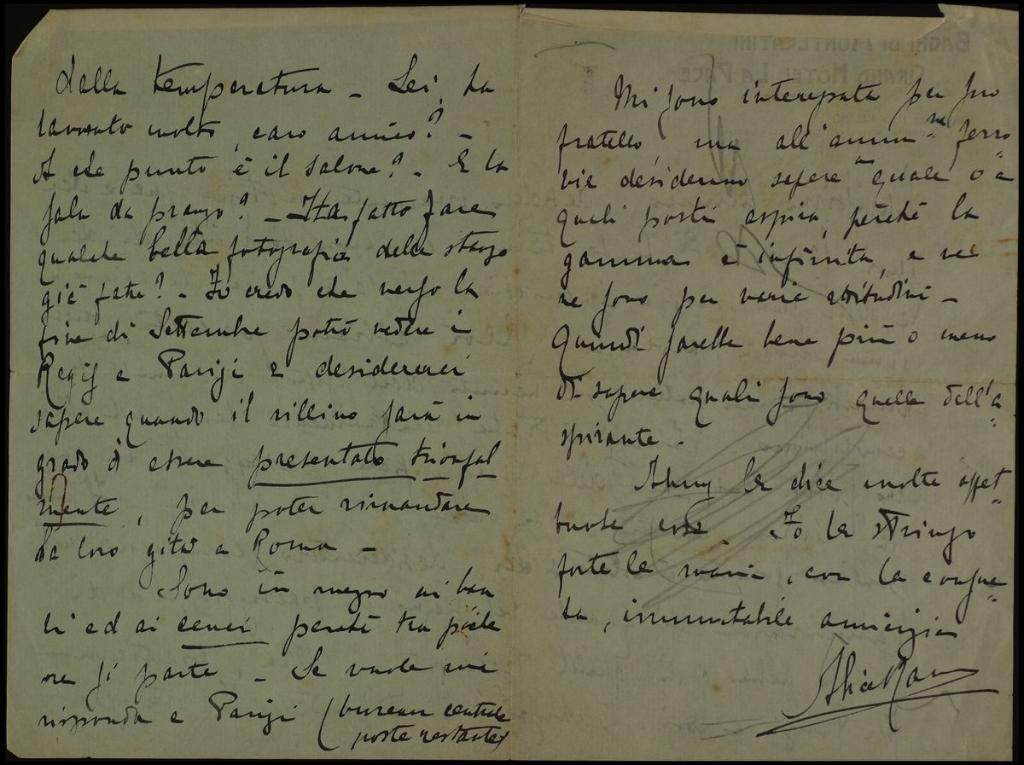 della temperatura – Lei, ha
lavorato molto, caro amico? –
A che punto è il salone? – E la
sala da pranzo? – Ha fatto fare
qualche bella fotografia delle stanze
già fatte? – Io credo che verso la
fine di Settembre potrò vedere i
a Parigi e desidererei
sapere quando il villino sarà in
grado di essere presentato trionfal
mente, per poter rimandare
la loro gita a Roma –
Sono in mezzo ai bau
li ed ai cenci perché tra poche
ore si parte – Se vuole mi
risponda a Parigi (bureau central
poste restante)
BAGNI DI MONTECATINI
GRAND HOTEL LA PACE
Mi sono interessata per suo
fratello, ma all'amm.ne ferro=
vie desiderano sapere a quale o a
quali posti aspira, perché la
gamma è infinita, e ve
ne sono per varie attitudini –
Quindi sarebbe bene più o meno
di sapere quali sono quelle dell'a=
spirante –
le dice molte affet=
tuose cose – Io le stringo
forte le mani, con la consue=
ta, immutabile amicizia